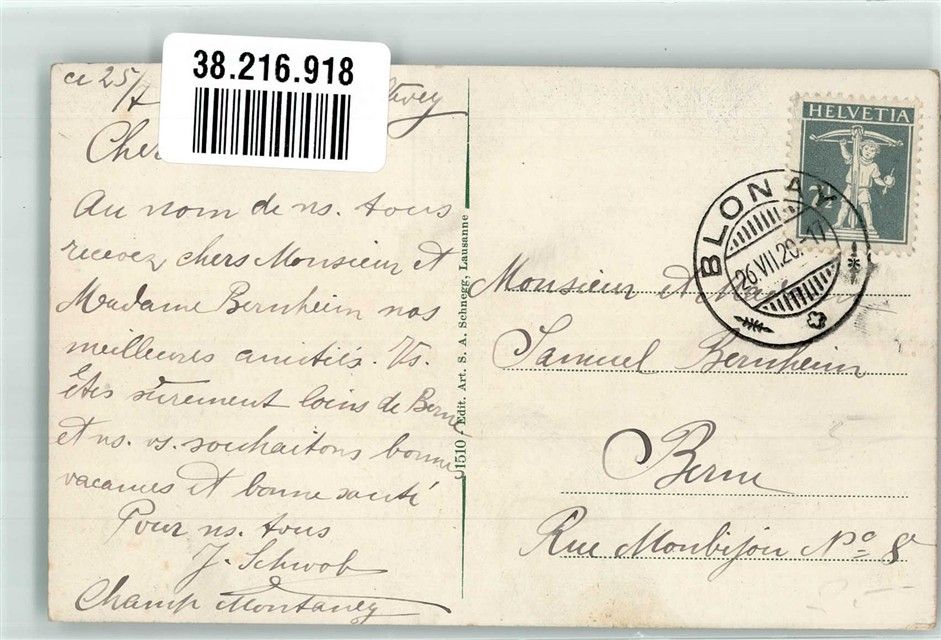 38.216.918
ce 25/7
Cher
Au nom de ns. tous
recevez chers Monsieur et
Madame Bernheim nos
meilleures amitiés. Vs.
êtes sûrement loins de Berne
et ns. vs. souhaitons bonne
vacances et bonne santé
Pour ns. tous
J. Schwob
Champ Montaney
1510 - Edit. Art. S. A. Schnegg, Lausanne
HELVETIA
7½
BLONAY
26.VII.20.-17
Monsieur et Mad
Samuel Bernheim
Berne
Rue Monbijou No 8